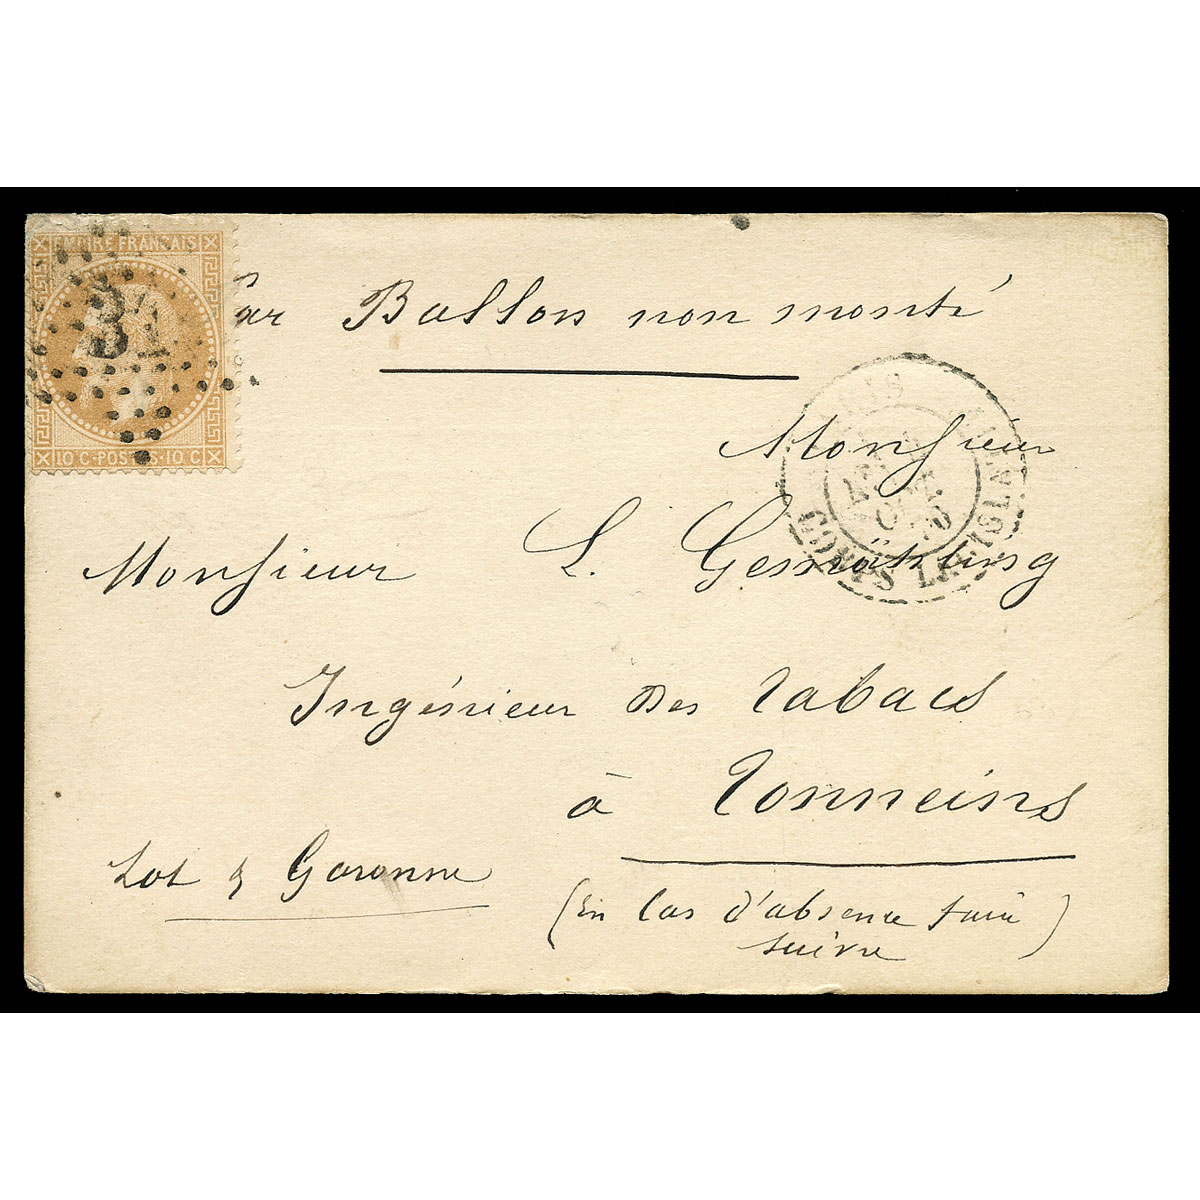 EMPIRE FRANÇAIS
10 C-POSTES-10 C
Par Ballon non monté
PARIS
CORPS LEGISLATIF
OCT.
Monsieur
Monsieur L. Gemähling
Ingénieur des Tabacs
à Tonneins
Lot & Garonne
(En cas d'absence faire
suivre)